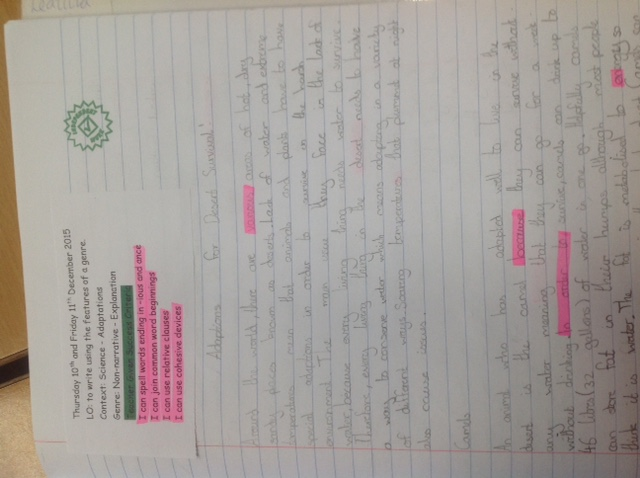 Thursday 10th and Friday 11th December 2015
LO: to write using the features of a genre.
Context: Science - Adaptations
Genre: Non-narrative - Explanation
Teacher Given Success Criteria
I can spell words ending in -ious and ance
I can join common word beginnings
I can use relative clauses
I can use cohesive devices
Adaptions for Desert Survival
Around the world, there are various areas of hot, dry
sandy places known as deserts. Lack of water and extreme
temperatures mean that animals and plants have to have
special adaptions in order to survive in the harsh
environment. Their main issue they face is the lack of
water because every living thing needs water to survive.
Therefore, every living thing in the desert needs to have
a way to conserve water which means adapting in a variety
of different ways. Soaring temperatures that plummet at night
also cause issues.
Camels
An animal who has adapted well to live in the
desert is the camel because they can survive without
any water meaning that they can go for a week
without drinking. In order to survive, camels can drink up to
46 litres of water in one go. camels
can store fat in their humps although most people
think it is water. The fat is metabolised to energy so